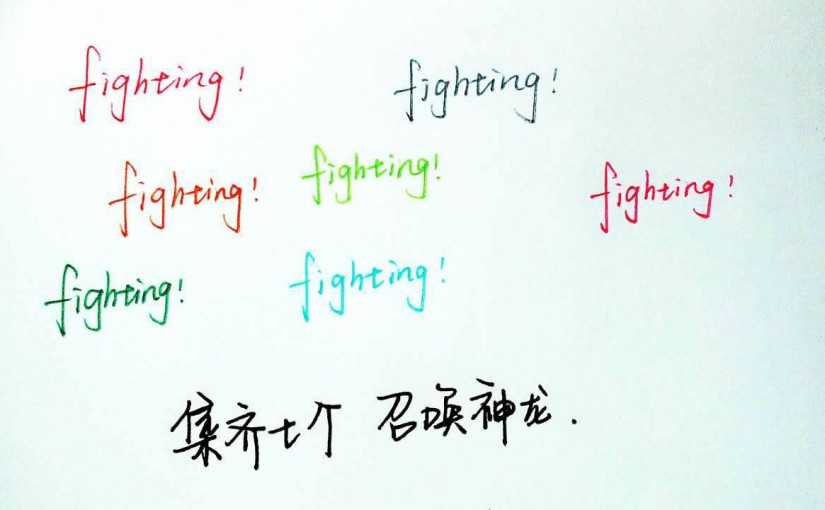 fighting! fighting!
fighting! fighting! fighting!
fighting! fighting!
集齐七个 召唤神龙.